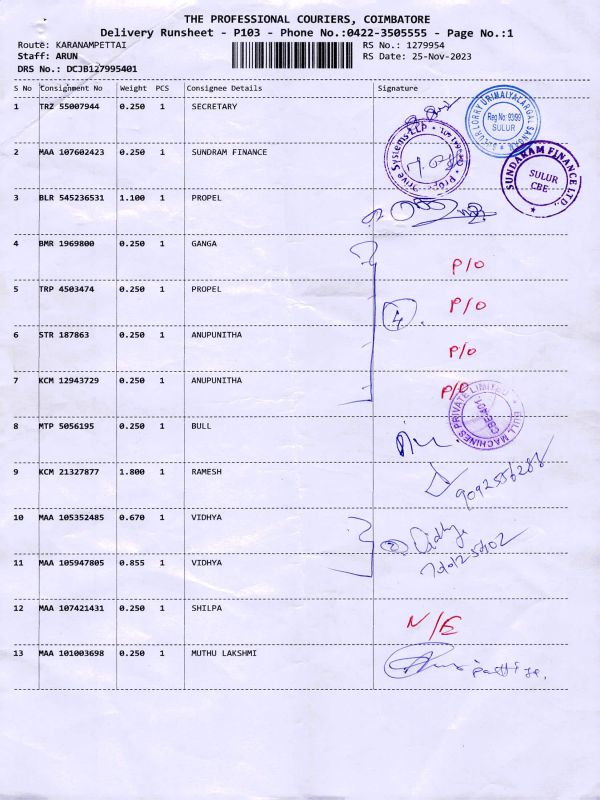 THE PROFESSIONAL COURIERS, COIMBATORE
Delivery Runsheet - P103 - Phone No.:0422-3505555 - Page No.:1
Route: KARANAMPETTAI RS No.: 1279954
Staff: ARUN RS Date: 25-Nov-2023
DRS No.: DCJB127995401
S No Consignment No Weight PCS Consignee Details Signature
1 TRZ 55007944 0.250 1 SECRETARY
SULUR LORRY URIMAIYALARGAL SANGAM Reg No 93/99 SULUR
2 MAA 107602423 0.250 1 SUNDRAM FINANCE
SUNDARAM FINANCE LTD., SULUR CBE
3 BLR 545236531 1.100 1 PROPEL
4 BMR 1969800 0.250 1 GANGA P/O
5 TRP 4503474 0.250 1 PROPEL 4. P/O
6 STR 187863 0.250 1 ANUPUNITHA P/O
7 KCM 12943729 0.250 1 ANUPUNITHA P/O
BULL MACHINES PRIVATE LIMITED
8 MTP 5056195 0.250 1 BULL
9 KCM 21327877 1.800 1 RAMESH
10 MAA 105352485 0.670 1 VIDHYA 2 Vidhya
11 MAA 105947805 0.855 1 VIDHYA
12 MAA 107421431 0.250 1 SHILPA N/E
13 MAA 101003698 0.250 1 MUTHU LAKSHMI